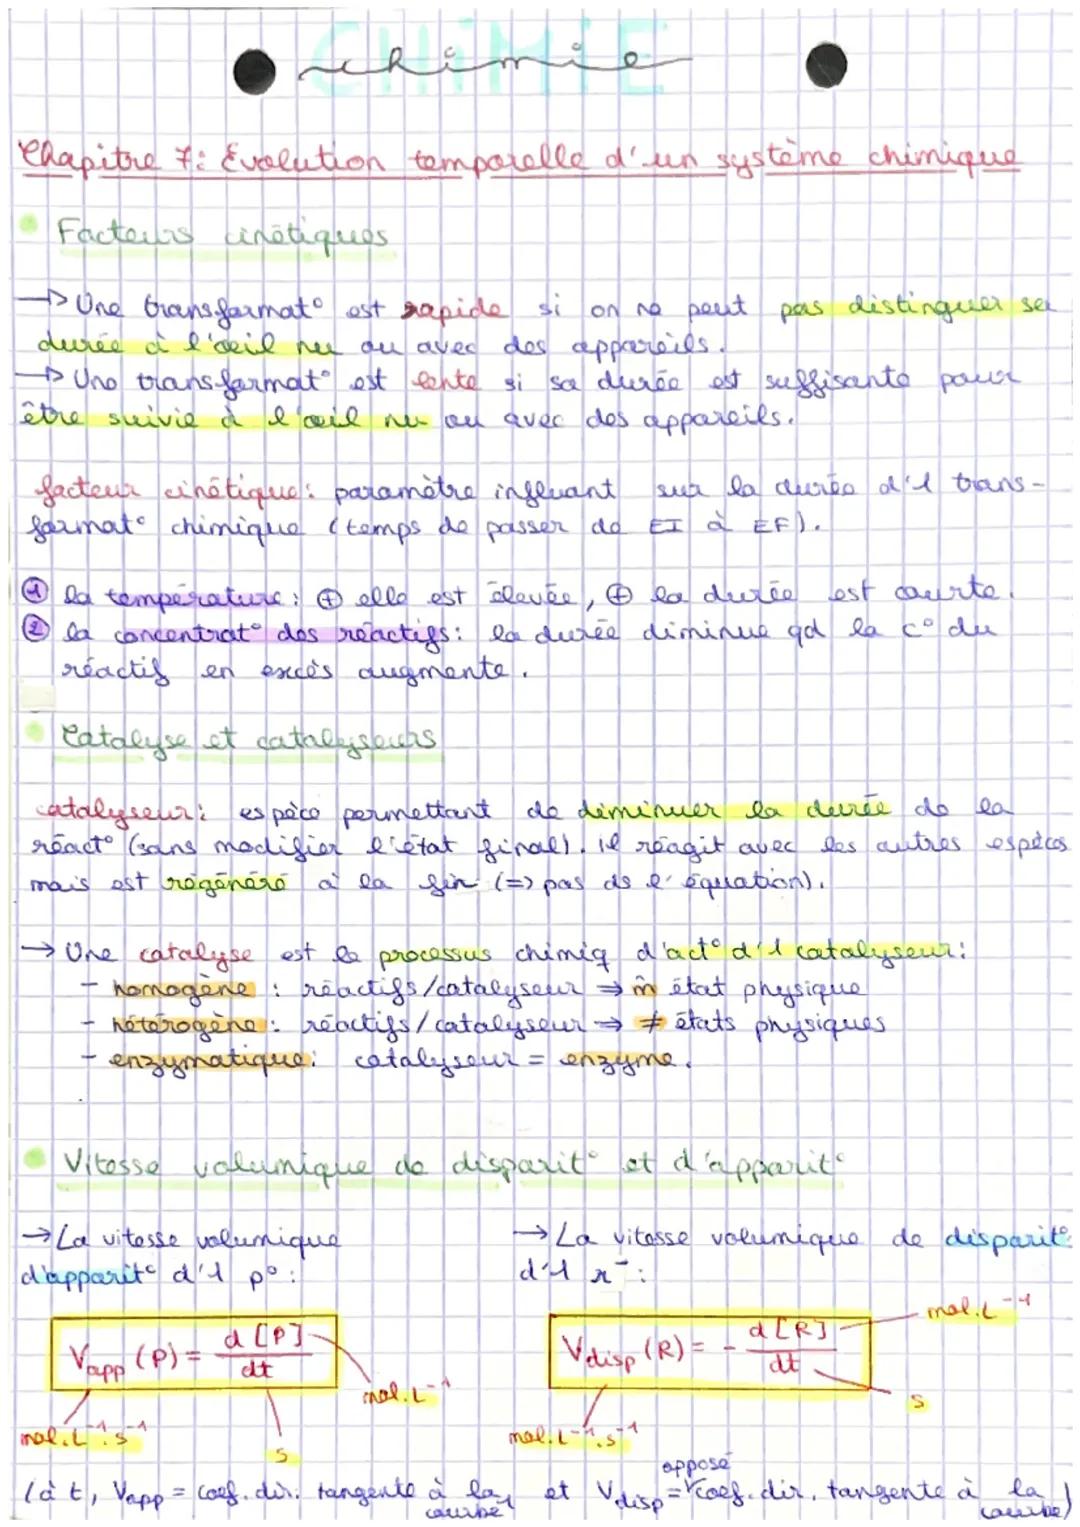 CHIMIE
chimie
Chapitre 7: Évolution temporelle d'un système chimique
Facteurs cinétiques
→ Une transformat° est rapide si on ne peut pas distinguer sa
durée à l'œil nu ou avec des appareils.
→ Une transformat° est lente si sa durée est suffisante pour
être suivie à l'œil nu ou avec des appareils.
facteur cinétique: paramètre influant sur la durée d'1 trans-
format° chimique (temps de passer de EI à EF).
① la température: ⊕ elle est élevée, ⊕ la durée est courte.
② la concentrat° des réactifs: la durée diminue qd la c° du
réactif en excès augmente.
Catalyse et catalyseurs
catalyseur: espèce permettant de diminuer la durée de la
réact° (sans modifier l'état final). il réagit avec les autres espèces
mais est régénéré à la fin (=> pas ds l'équation).
→ Une catalyse est le processus chimiq d'act° d'1 catalyseur:
- homogène : réactifs/catalyseur → m̂ état physique
- hétérogène: réactifs/catalyseur → ≠ états physiques
- enzymatique: catalyseur = enzyme.
Vitesse volumique de disparit° et d'apparit°
→ La vitesse volumique
d'apparit° d'1 p°:
Vapp (P) = d [P] / dt
mol.L⁻¹
mol.L⁻¹.s⁻¹
s
→ La vitesse volumique de disparit°
d'1 r⁻:
Vdisp (R) = - d [R] / dt
mol.L⁻¹
s
mol.L⁻¹.s⁻¹
(à t, Vapp = coef. dir. tangente à la courbe, et Vdisp = opposé coef. dir. tangente à la courbe)